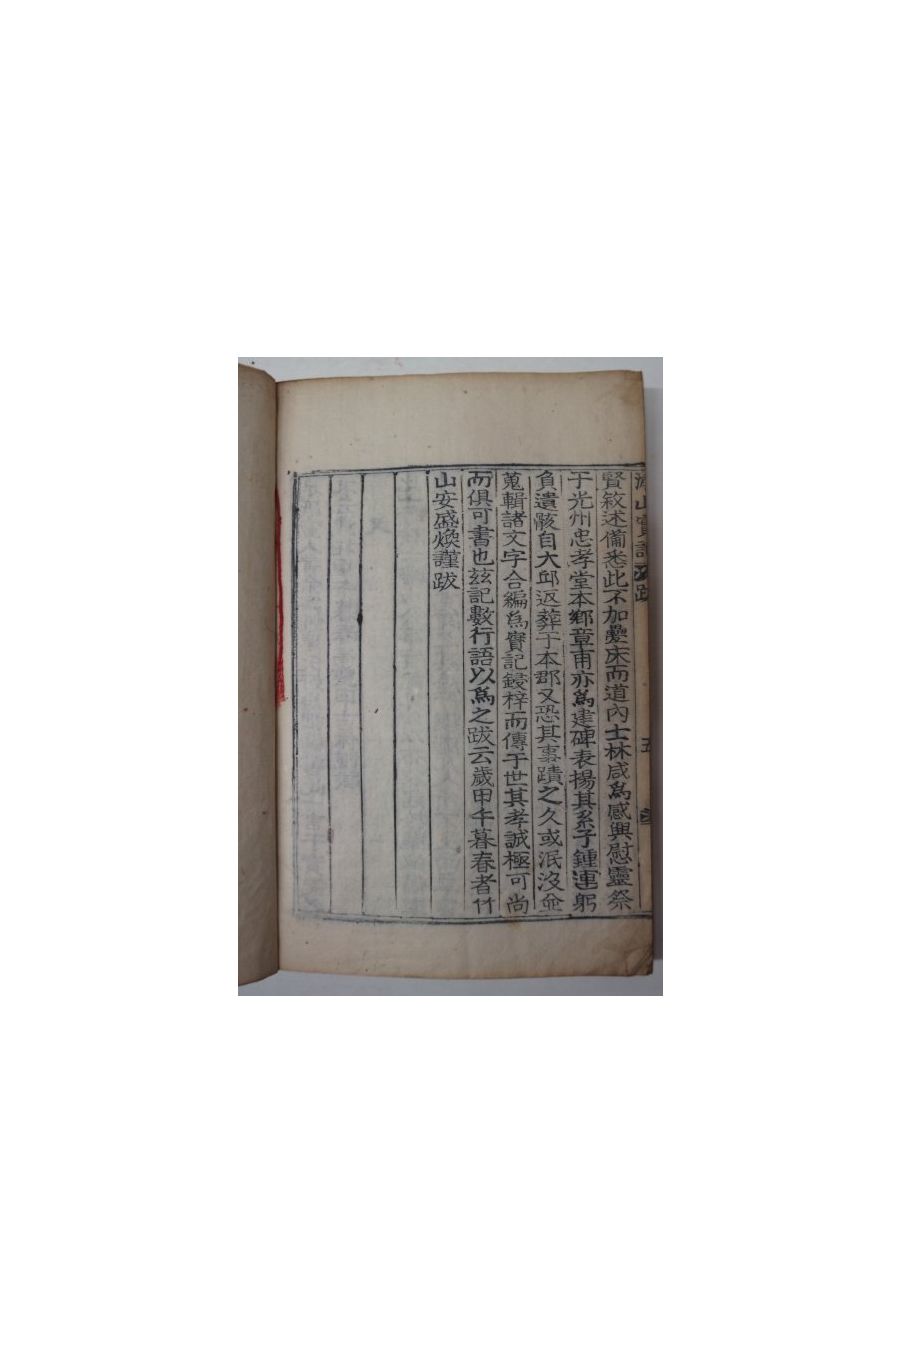 山實記 跋
五
賢敘述備悉此不加疊床而道內士林咸爲感興慰靈祭
于光州忠孝堂本鄉章甫亦爲建碑表揚其系子鍾連躬
負遺骸自大邱返葬于本郡又恐其事蹟之久或泯沒僉
蒐輯諸文字合編爲實記鋟梓而傳于世其孝誠極可尚
而俱可書也玆記數行語以爲之跋云歲甲午暮春者竹
山安盛煥謹跋